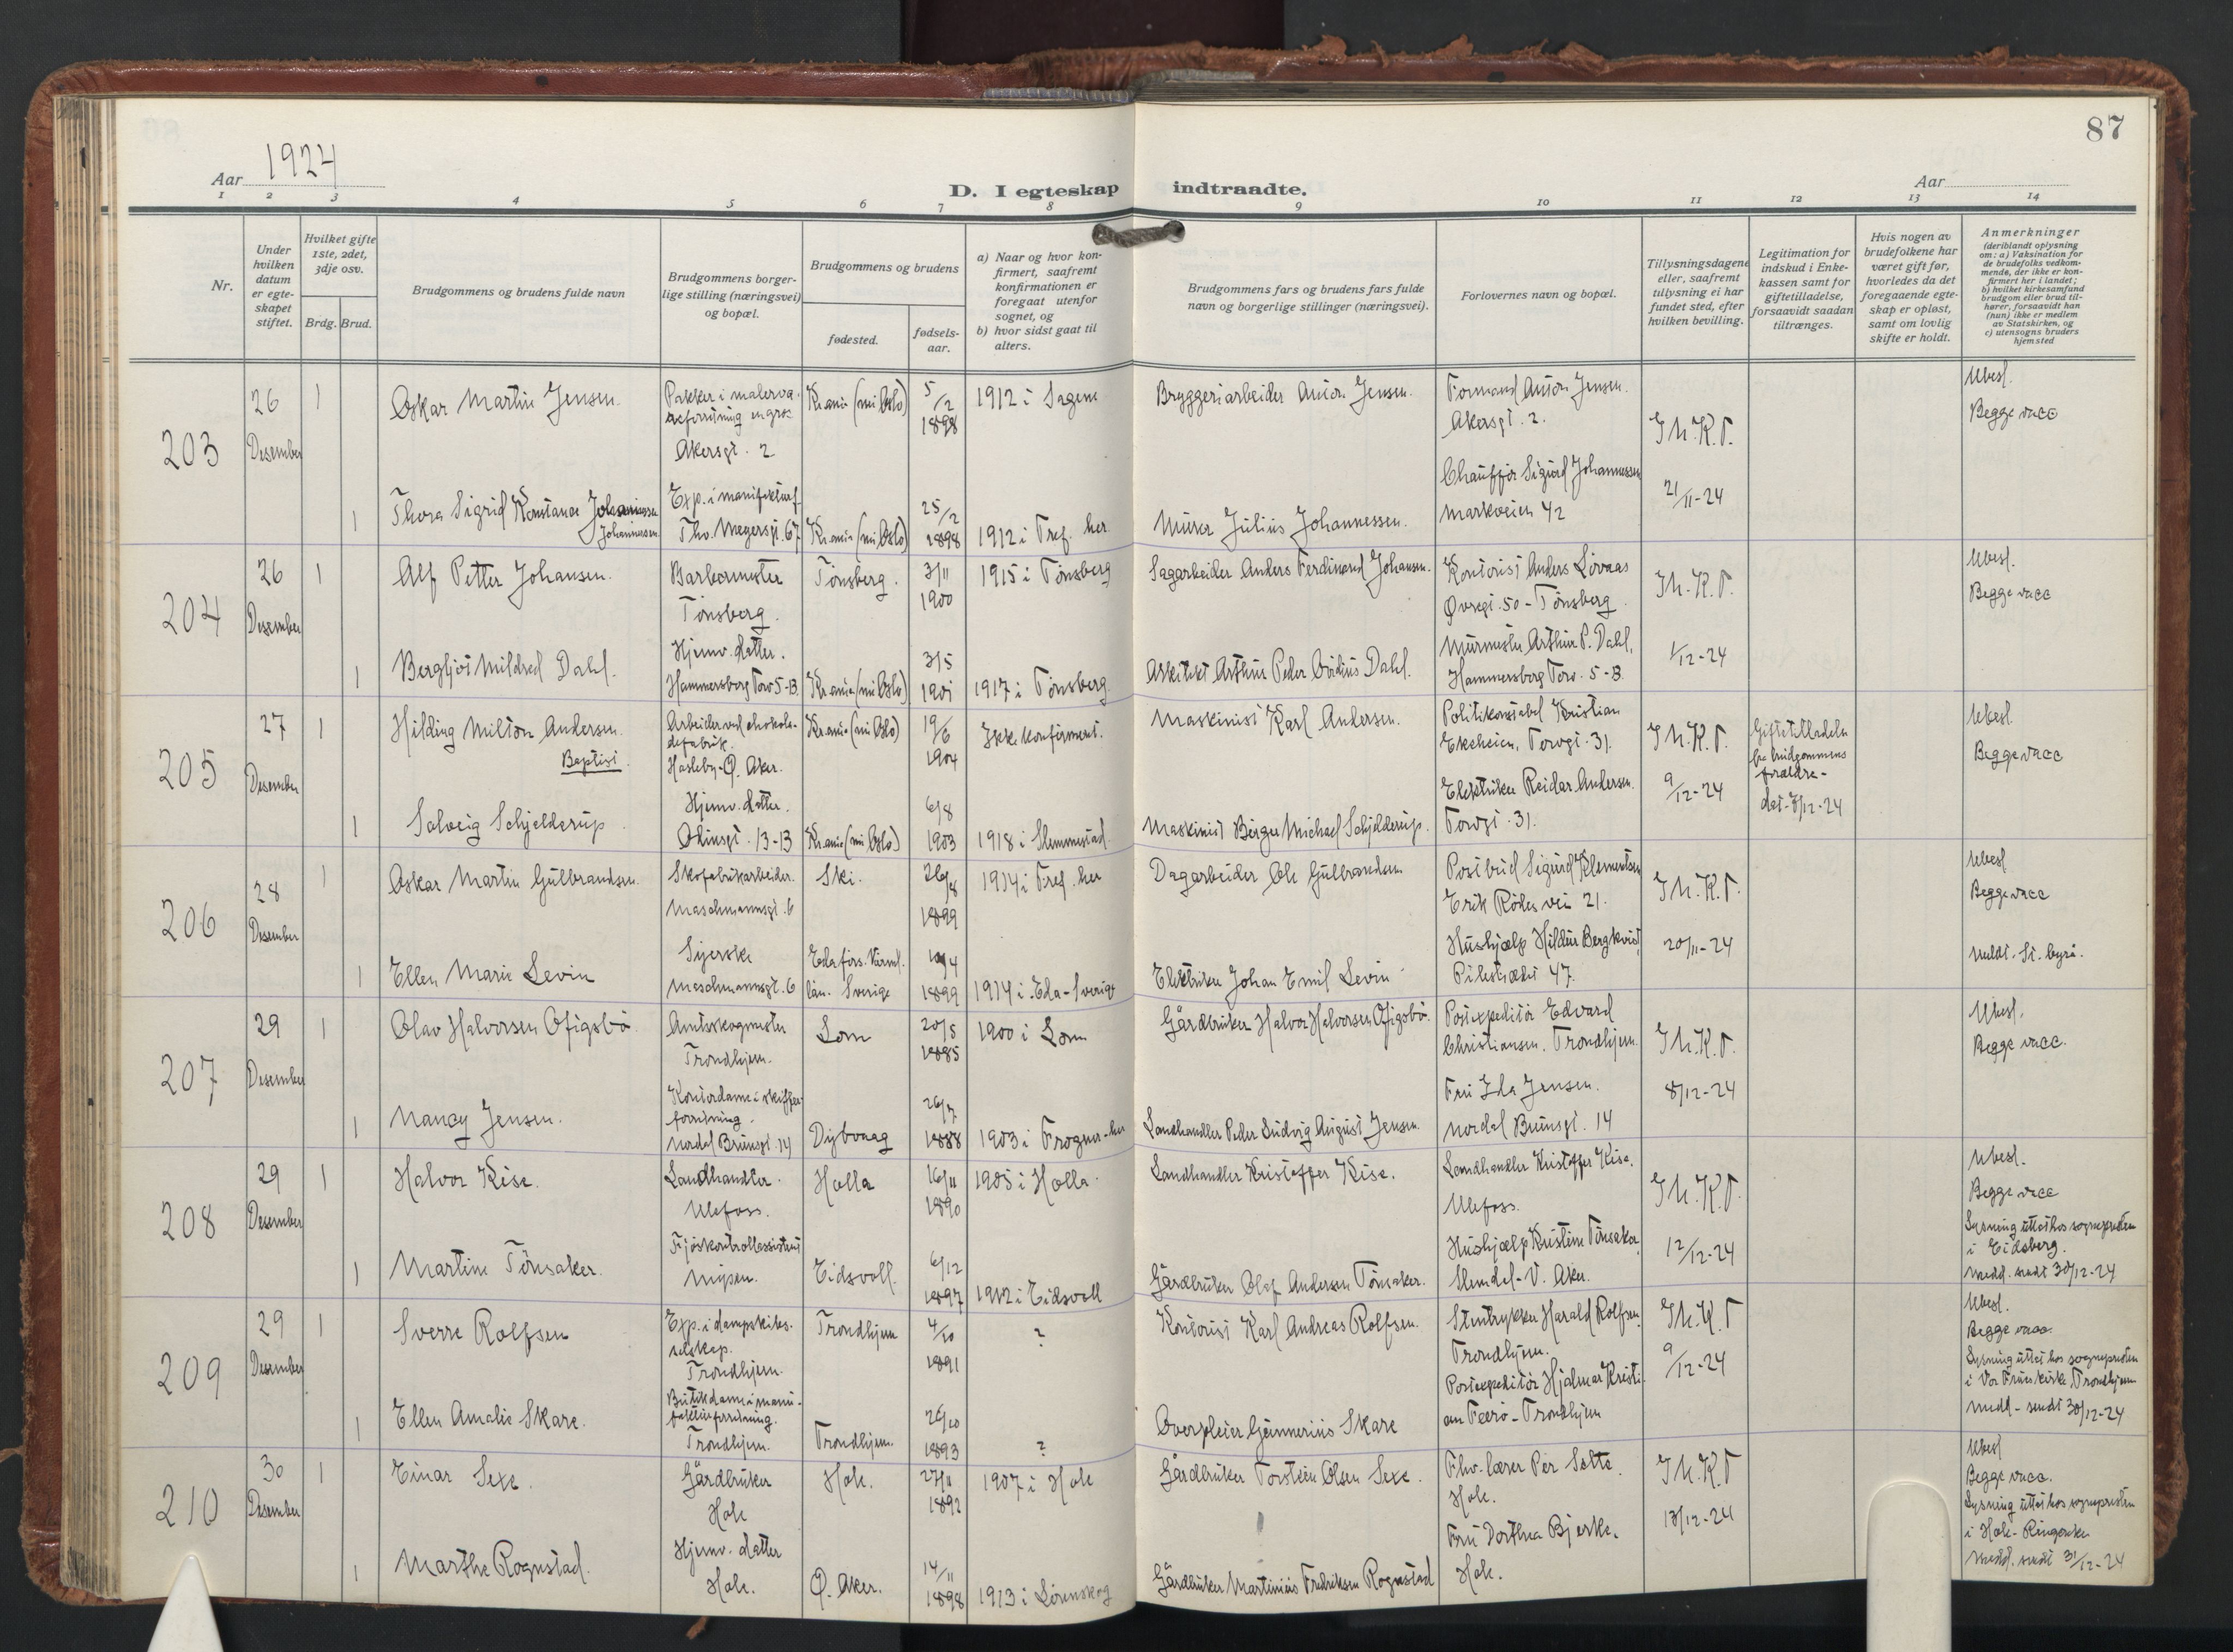 87
Aar 1924
D. I egteskap indtraadte.
Aar
1 2 3 4 5 6 7 8 9 10 11 12 13 14
Nr.
Under hvilken datum er egte-skapet stiftet.
Hvilket gifte 1ste, 2det, 3dje osv.
Brdg. Brud.
Brudgommens og brudens fulde navn
Brudgommens borger-lige stilling (næringsvei) og bopæl.
Brudgommens og brudens
fødested.
fødsels-aar.
a) Naar og hvor kon-firmert, saafremt konfirmationen er foregaat utenfor sognet, og
b) hvor sidst gaat til alters.
Brudgommens fars og brudens fars fulde navn og borgerlige stillinger (næringsvei).
Forlovernes navn og bopæl.
Tillysningsdagene eller, saafremt tillysning ei har fundet sted, efter hvilken bevilling.
Legitimation for indskud i Enke-kassen samt for giftetilladelse, forsaavidt saadan tiltrænges.
Hvis nogen av brudefolkene har været gift før, hvorledes da det foregaaende egte-skap er opløst, samt om lovlig skifte er holdt.
Anmerkninger
(deriblandt oplysning om: a) Vaksination for de brudefolks vedkom-mende, der ikke er kon-firmert her i landet; b) hvilket kirkesamfund brudgom eller brud til-hører, forsaavidt han (hun) ikke er medlem av Statskirken, og c) utensogns bruders hjemsted
203
26 Desember
1
Oskar Martin Jensen.
Pakker i malerva-
Akersgt. 2
Kr.ania (nu Oslo)
5/2 1898
1912 i Sagene
Bryggeriarbeider Anton Jensen.
Formand Anton Jensen.
Akersgt. 2.
Ubesl.
Begge vacc
1
Thora Sigrid Konstance Johannessen
Johannessen
Exp. i manufakturf.
Thv. Meyersgt. 67
Kr.ania (nu Oslo)
25/2 1898
1912 i Tref. her
Murer Julius Johannessen.
Chauffør Sigurd Johannessen
Markveien 42
21/11-24
204
26 Desember
1
Alf Petter Johansen.
Barbermester
Tønsberg.
Tønsberg.
3/11 1900
1915 i Tønsberg
Sagarbeider Anders Ferdinand Johansen.
Kontorist Anders Løvaas
Øvregt. 50 - Tønsberg.
Ubesl.
Begge vacc
1
Bergljot Mildred Dahl.
Hjemv. datter.
Hammersborg Torv 5-B.
Kr.ania (nu Oslo)
3/5 1901
1917 i Tønsberg
Arkitekt Arthur Peder Ovidius Dahl.
Murmester Arthur P. Dahl,
Hammersborg Torv. 5-B.
1/12-24
205
27 Desember
1
Hilding Milton Andersen.
Baptist.
Arbeider ved chokola-
defabrik.
Hasleby - Ø. Aker.
Kr.ania (nu Oslo)
19/6 1904
Ikke konfirmert.
Maskinist Karl Andersen.
Politikonstabel Kristian
Ekeheien, Torvgt. 31.
Giftetilladelse
fra brudgommens
forældre-
dat. 8/12-24
Ubesl.
Begge vacc
1
Solveig Schjelderup.
Hjemv. datter.
Odinsgt. 13-B
Kr.ania (nu Oslo)
6/8 1903
1918 i Slemmestad
Maskinist Birger Michael Schjelderup.
Elektriker Reidar Andersen.
Torvgt. 31.
9/12-24
206
28 Desember
1
Oskar Martin Gulbrandsen.
Skofabrikarbeider.
Maschmannsgt. 6
Ski.
26/8 1899
1914 i Tref. her
Dagarbeider Ole Gulbrandsen
Postbud Sigurd Klementsen
Erik Rødes vei 21.
Ubesl
Begge vacc
1
Ellen Marie Levin
Syerske
Maschmannsgt. 6
Eda fors. Värml.
län. Sverige
1899
1914 i Eda - Sverige
Elektriker Johan Emil Levin
Hushjælp Hildur Bergkvist
Pilestrædet 47.
20/11-24
Meldt. St. byrå.
207
29 Desember
1
Olav Halvorsen Ofigsbø.
Amtsskogmester
Trondhjem.
Lom
20/5 1885
1900 i Lom
Gårdbruker Halvor Halvorsen Ofigsbø.
Postexpeditør Edvard
Christiansen. Trondhjem.
Ubesl.
Begge vacc.
1
Nancy Jensen.
Kontordame i skifer-
forretning.
Nordal Brunsgt. 14
Dybvaag
26/7 1888
1903 i Frogner-her
Landhandler Peder Ludvig August Jensen.
Fru Ida Jensen.
Nordal Brunsgt. 14
8/12-24
208
29 Desember
1
Halvor Kise.
Landhandler.
Ulefoss.
Holla
16/11 1890
1905 i Holla.
Landhandler Kristoffer Kise.
Landhandler Kristoffer Kise.
Ulefoss.
Ubesl.
Begge vacc
Lysning uttat hos sogneprsten
i Eidsberg.
Medd. sendt 30/12-24
1
Martine Tønsaker.
Fjøskontrollassistent
Mysen.
Eidsvoll.
6/12 1897
1912 i Eidsvoll
Gårdbruker Olaf Andersen Tønsaker.
Hushjælp Kristine Tønsaker
Slemdal - V. Aker.
12/12-24
209
29 Desember
1
Sverre Rolfsen
Exp. i dampskibs-
selskap.
Trondhjem.
Trondhjem
4/10 1891
?
Kontorist Karl Andreas Rolfsen.
Stentrykker Harald Rolfsen
Trondhjem.
9/12-24
Ubesl.
Begge vacc.
Lysning uttat hos sogneprsten
i Vor Frue kirke, Trondhjem
Medd - sendt 30/12-24
1
Ellen Amalie Skare.
Butikdame i manu-
fakturforretning.
Trondhjem.
Trondhjem.
26/10 1893
?
Overpleier Gunnerius Skare
Postexpeditør Hjalmar Kristi-
an Feerø - Trondhjem
210
30 Desember
1
Einar Sexe.
Gårdbruker
Hole
Hole.
27/11 1892
1907 i Hole
Gårdbruker Torstein Olsen Sexe.
Fhv. lærer Per Sælte.
Hole.
Ubesl
Begge vacc.
Lysning uttat hos sogneprsten
i Hole - Ringerike
Medd. sendt 31/12-24
1
Marthe Rognstad.
Hjemv. datter
Hole.
Ø. Aker.
14/11 1898
1913 i Lørenskog
Gårdbruker Martinius Fredriksen Rognstad
Fru Dorthea Bjerke.
Hole.
13/12-24